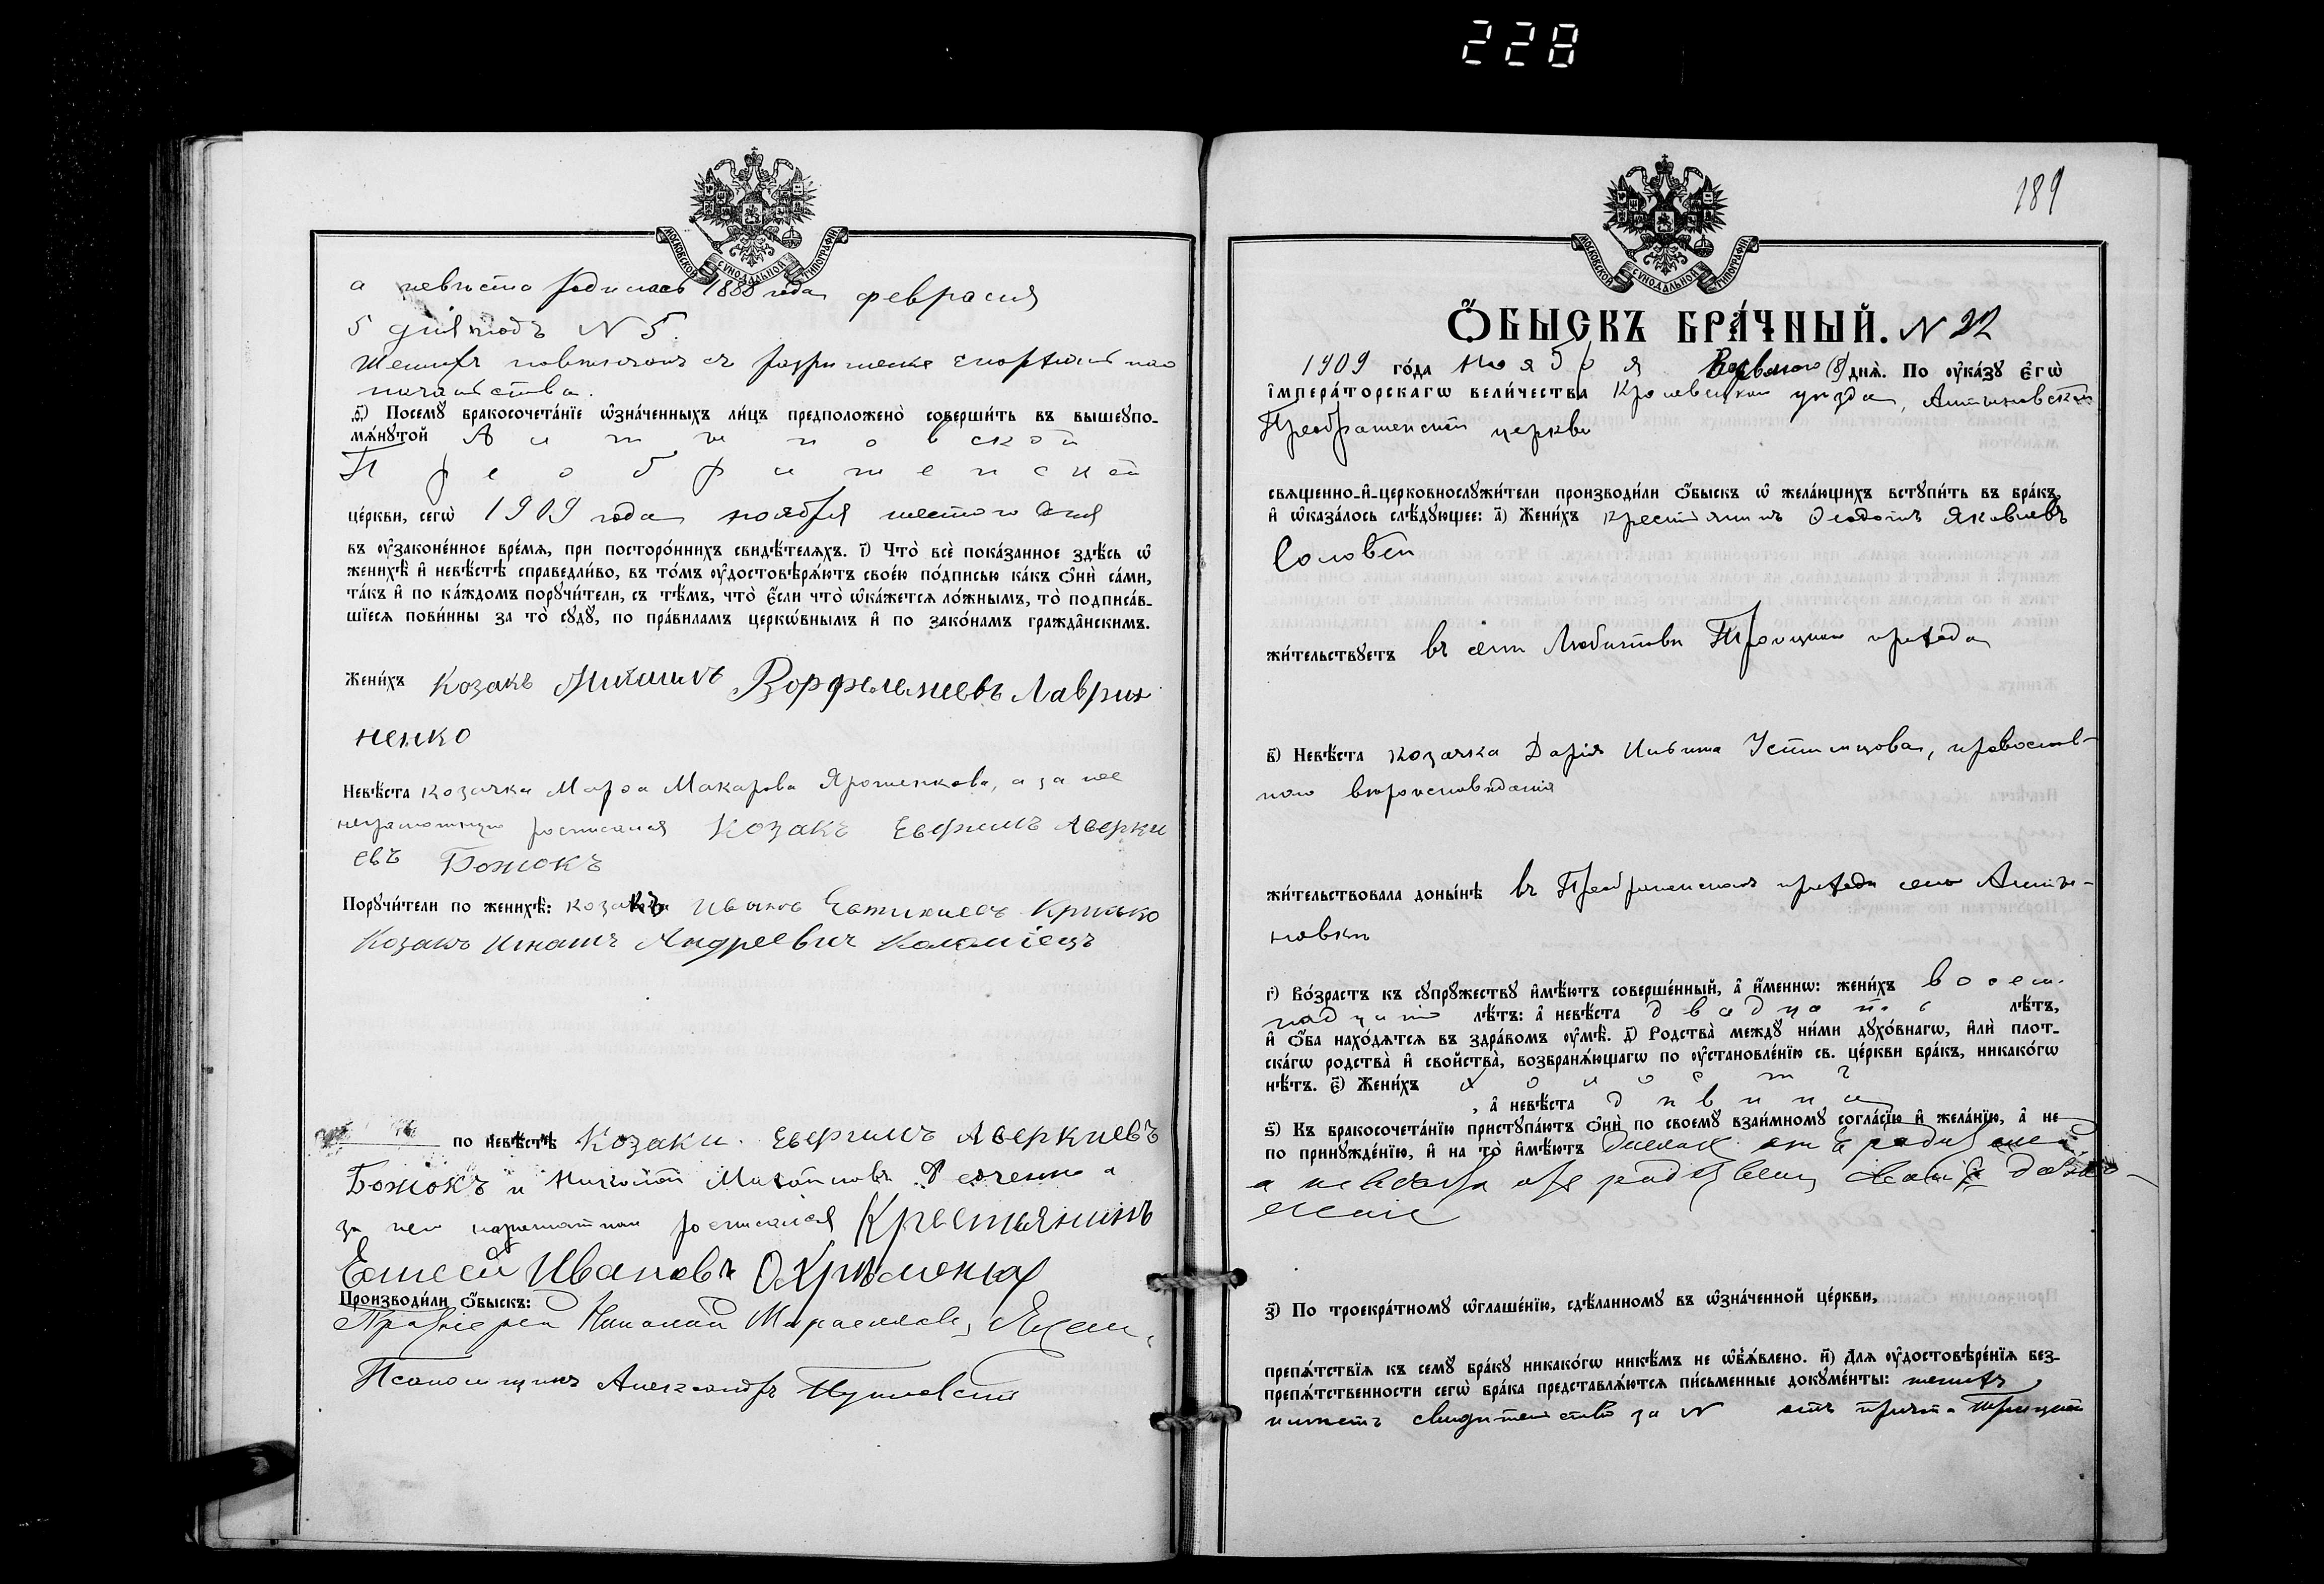 228
МОСКОВСКОЙ СѴНОДАЛЬНОЙ ТИПОГРАФІИ
а невѣста родилась 1888 года февраля
5 дня подъ N 5.
Женихъ повѣнчанъ съ разрѣшенія
начальства.
д҃) Посемꙋ бракосочета́нїе ѡ҆зна́ченныхъ ли́цъ предположено̀ соверши́ть въ вышеꙋпо-
мѧ́нꙋтой Антоновской
Преображенской
це́ркви, сегѡ̀ 1909 года ноября шестого дня
въ ᲂу҆законе́нное вре́мѧ, при посторо́ннихъ свидѣ́телѧхъ. і҃) Что̀ всѐ пока́занное здѣ́сь ѡ҆
женихѣ̀ и҆ невѣ́стѣ справедли́во, въ то́мъ ᲂу҆достовѣрѧ́ютъ свое́ю по́дписью ка́къ ѻ҆нѝ са́ми,
та́къ и҆ по ка́ждомъ порꙋчи́тели, съ тѣ́мъ, что̀ є҆́сли что̀ ѡ҆ка́жетсѧ ло́жнымъ, то̀ подписа́в-
шїесѧ пови́нны за то̀ сꙋдꙋ̀, по пра́виламъ церкѡ́внымъ и҆ по зако́намъ гражда́нскимъ.
Жени́хъ Козакъ Ворфоломѣевъ Лаврин
ненко
Невѣ́ста козачка Марѳа Макарова Ярошенкова, а за нее
неграмотную росписался Козакъ Евфимъ Аверки
евъ Божокъ
Порꙋчи́тели по женихѣ̀: козакъ Иванъ Евтихіевъ Кришко
Козакъ Игнатъ Андреевичъ Коломіецъ
по невѣ́стѣ Козаки. Евфимъ Аверкиевъ
Божокъ и Николай а
за неграмотнаго росписался Крестьянинъ
Елисей Ивановъ
Производи́ли ѻ҆́быскъ:
Николай
Псаломщикъ Александръ
189
МОСКОВСКОЙ СѴНОДАЛЬНОЙ ТИПОГРАФІИ
Ѻ҆́БЫСКЪ БРА́ЧНЫЙ. N 22
1909 го́да ноября Восьмого (8) днѧ̀. По ᲂу҆ка́зꙋ є҆гѡ̀
і҆мпера́торскагѡ вели́чества Кролевецкаго уѣзда, Антоновской
Преображенской церкви
свѧще́нно-и҆-церковнослꙋжи́тели производи́ли ѻ҆́быскъ ѡ҆ жела́ющихъ встꙋпи́ть въ бра́къ,
и҆ ѡ҆каза́лось слѣ́дꙋющее: а҃) Жени́хъ крестьянинъ Ѳеодотъ Яковлевъ
Соловей
жи́тельствꙋетъ въ селѣ Любитовѣ Троицкаго прихода
в҃) Невѣ́ста козачка Дарія Ильина Устимцова, православ-
наго вѣроисповѣданія
жи́тельствовала доны́нѣ въ Преображенскомъ приходѣ села Анто-
новки
г҃) Во́зрастъ къ сꙋпрꙋ́жествꙋ и҆мѣ́ютъ соверше́нный, а҆ и҆́меннѡ: жени́хъ восем-
надцати лѣ́тъ: а҆ невѣ́ста двадцати лѣ́тъ,
и҆ ѻ҆́ба нахо́дѧтсѧ въ здра́вомъ ᲂу҆мѣ̀. д҃) Родства̀ междꙋ ни́ми дꙋхо́внагѡ, и҆лѝ плот-
ска́гѡ родства̀ и҆ сво́йства̀, возбранѧ́ющагѡ по ᲂу҆становле́нїю св. це́ркви бра́къ, никако́гѡ
нѣ́тъ. є҃) Жени́хъ холостъ
, а҆ невѣ́ста дѣвица
ѕ҃) Къ бракосочета́нїю пристꙋпа́ютъ ѻ҆нѝ по своемꙋ̀ взаи́мномꙋ согла́сїю и҆ жела́нїю, а҆ не
по принꙋжде́нїю, и҆ на то̀ и҆мѣ́ютъ женихъ отъ
а невѣста
з҃) По троекра́тномꙋ ѡ҆глаше́нїю, сдѣ́ланномꙋ въ ѡ҆зна́ченной це́ркви,
препѧ́тствїѧ къ семꙋ̀ бра́кꙋ никако́гѡ никѣ́мъ не ѡ҆б̾ѧ́влено. и҃) Длѧ ᲂу҆достовѣре́нїѧ без-
препѧ́тственности сегѡ̀ бра́ка представлѧ́ютсѧ пи́сьменные докꙋме́нты: женихъ
имѣетъ свидѣтельство за N отъ причта Троицкой